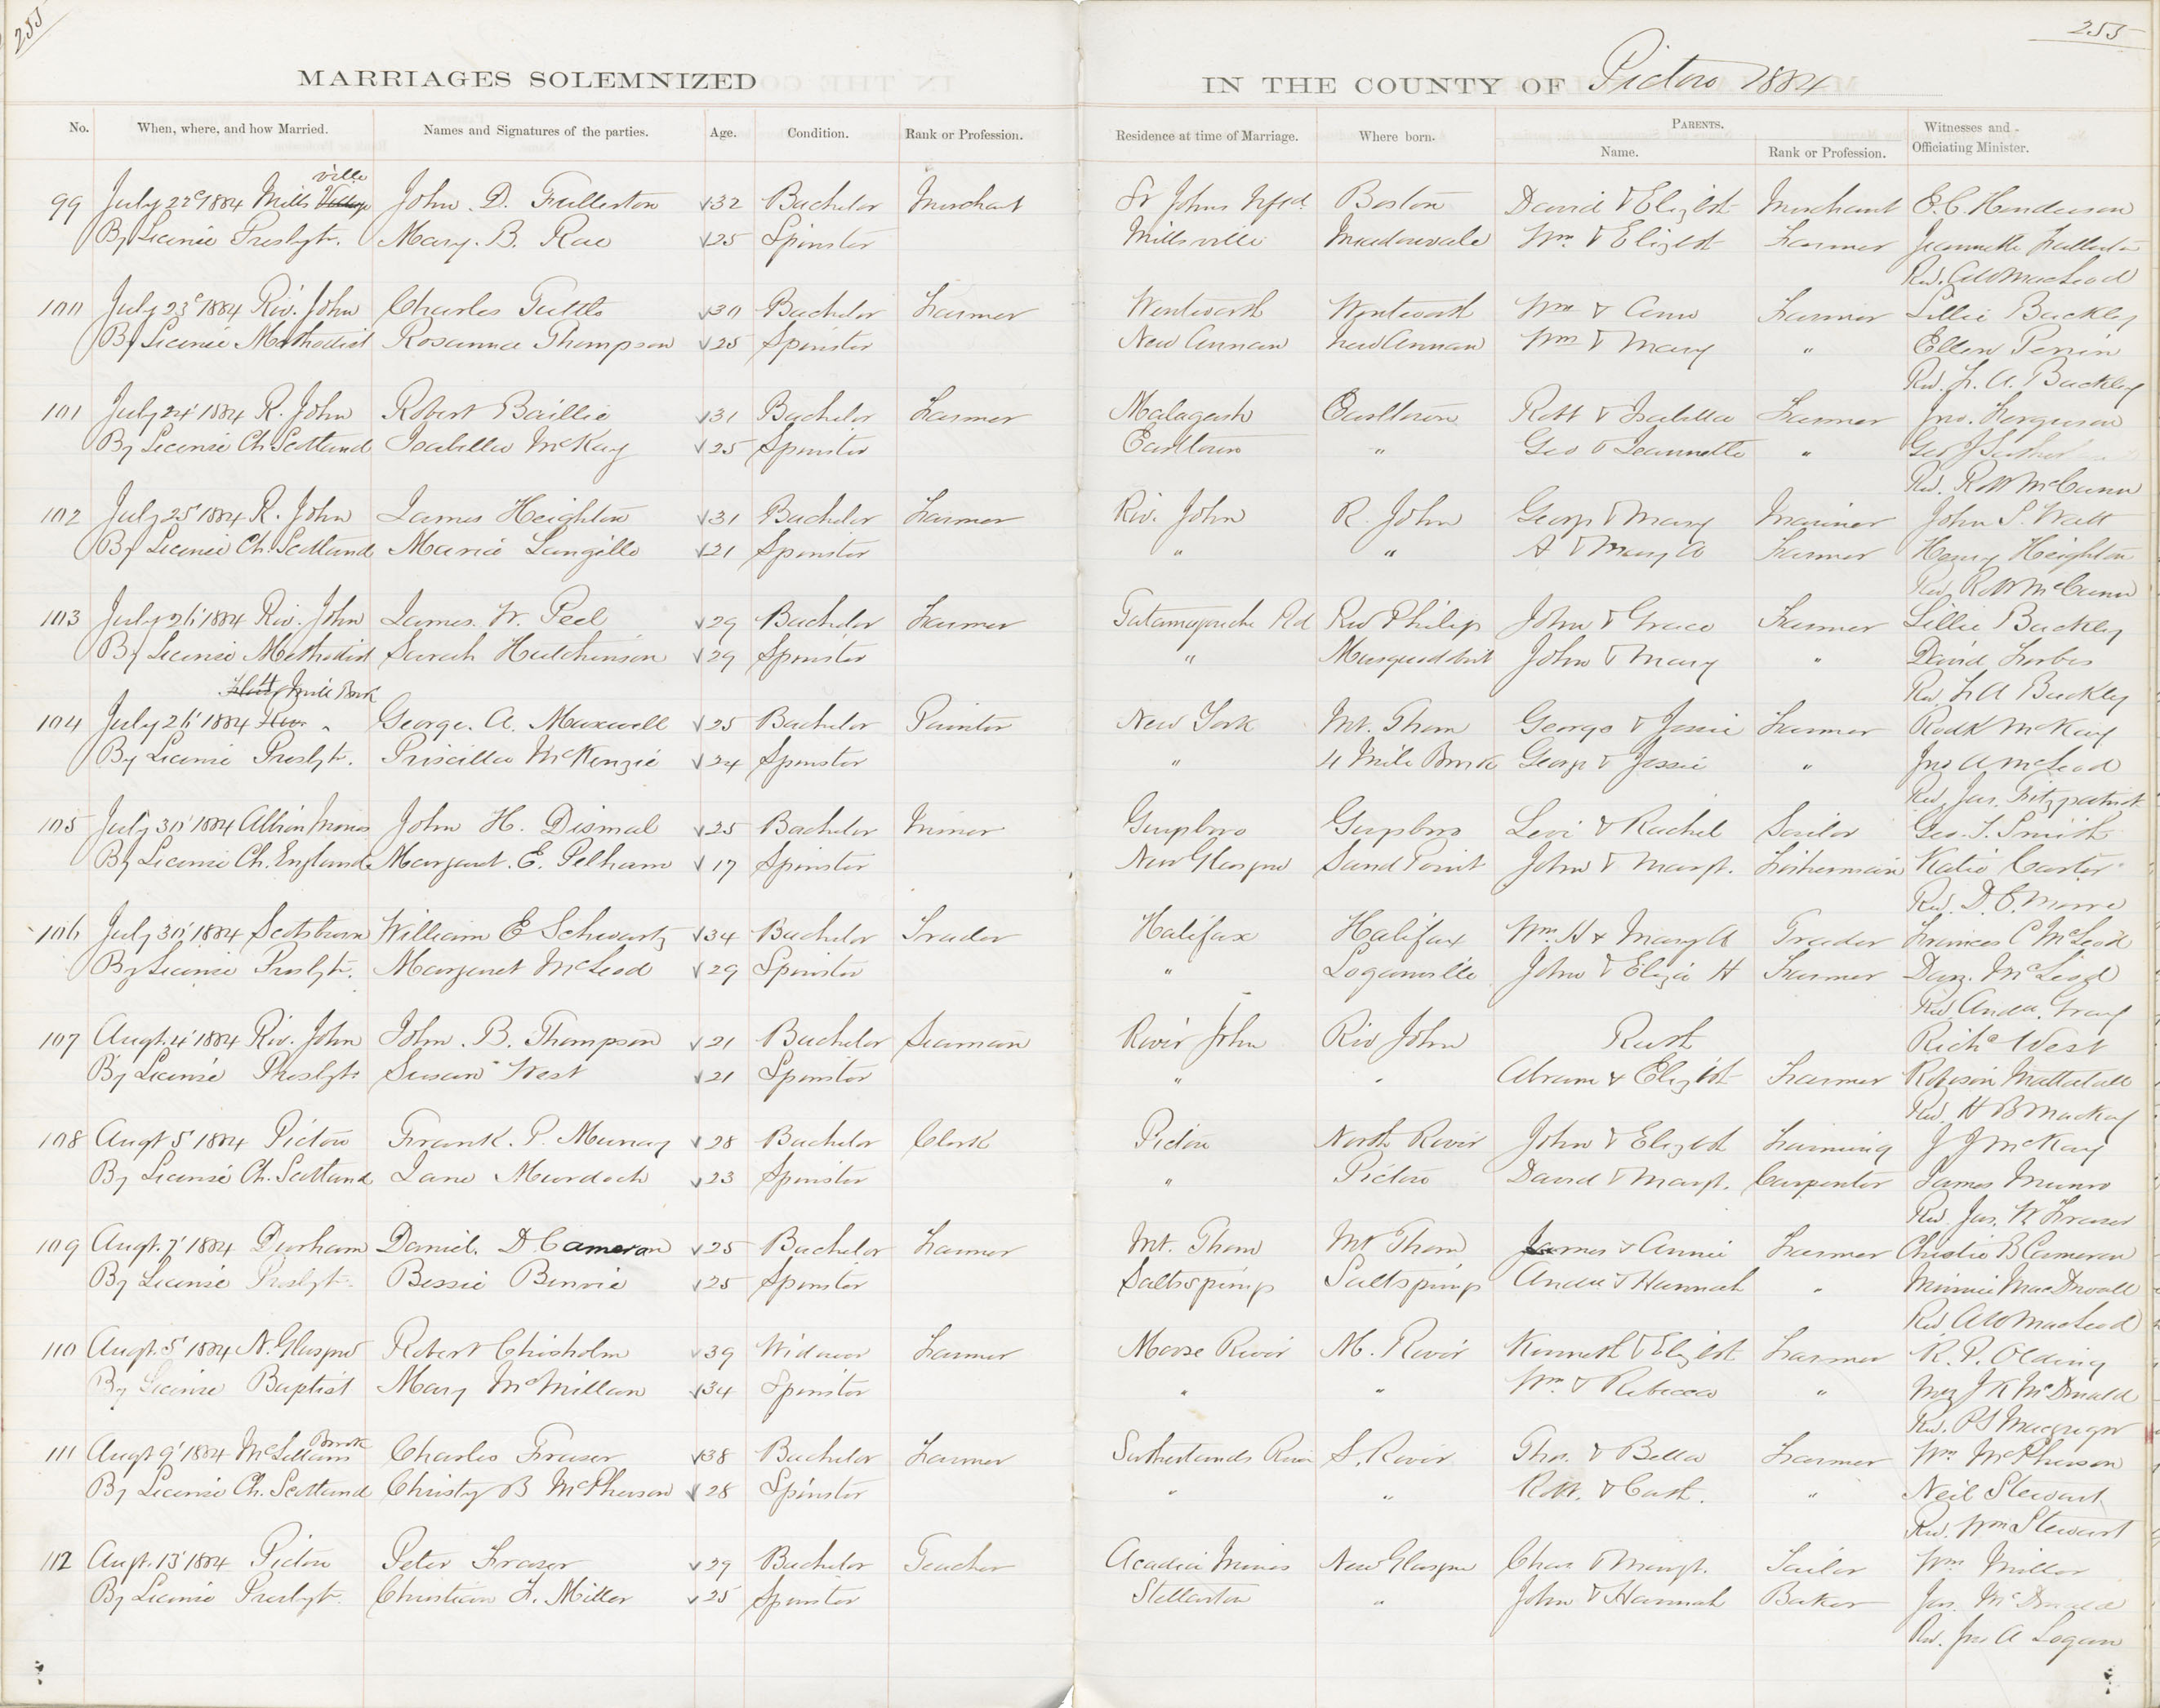 255
255
MARRIAGES SOLEMNIZED IN THE COUNTY OF Pictou 1884
No. When, where, and how Married. Names and Signatures of the parties. Age. Condition. Rank or Profession. Residence at time of Marriage. Where born. PARENTS. Witnesses and Officiating Minister.
Name. Rank or Profession.
ville
99 July 22d 1884 Mills Village John D. Fullerton 32 Bachelor Merchant St Johns Nfld. Boston David & Elizbth Merchant E. C. Henderson
By License Presbytn. Mary. B. Rae 25 Spinster Millsville Meadowvale Wm & Elizbth Farmer Jeannette Fullerton
Rev. A W MacLeod
100 July 23d 1884 Riv. John Charles Tuttle 30 Bachelor Farmer Wentworth Wentworth Wm & Ann Farmer Lillie Buckley
By License Methodist Rosanna Thompson 25 Spinster New Annan New Annan Wm & Mary " Ellen Perrin
Rev. F. A. Buckley
101 July 24' 1884 R. John Robert Baillie 31 Bachelor Farmer Malagash Earltown Robt & Isabella Farmer Jno. Ferguson
By License Ch. Scotland Isabella McKay 25 Spinster Earltown " Geo & Jeannette " Geo J
Rev. Robt McCunn
102 July 25' 1884 R. John James Heighton 31 Bachelor Farmer Riv. John R. John George & Mary Mariner John S. Watt
By License Ch. Scotland Maria Langille 21 Spinster " " A & Mary A Farmer Henry Heighton
Rev. Robt McCunn
103 July 26' 1884 Riv. John James. W. Peel 29 Bachelor Farmer Tatamagouche Rd Riv Philip John & Grace Farmer Lillie Buckley
By License Methodist Sarah Hutchinson 29 Spinster " Musquodobit John & Mary " David Forbes
Rev F A Buckley
4 Mile Brook
104 July 26' 1884 " George. A. Maxwell 25 Bachelor Painter New York Mt. Thom George & Jessie Farmer Rodk McKay
By License Presbytn. Priscilla McKenzie 24 Spinster " 4 Mile Brook George & Jessie " Jno A McLeod
Rev. Jas. Fitzpatrick
105 July 30' 1884 Albion Mines John H. Dismal 25 Bachelor Miner Guysboro Guysboro Levi & Rachel Sailor Geo. T. Smith
By License Ch. England Margaret. E. Pelham 17 Spinster New Glasgow Sand Point John & Margt. Fisherman Katie Carter
Rev. D. C. Moore
106 July 30' 1884 Scotsburn William E Schwartz 34 Bachelor Trader Halifax Halifax Wm. H & Mary A Trader Frances C McLeod
By License Presbytn. Margaret McLeod 29 Spinster " Loganville John & Eliza H Farmer Dan. McLeod
Rev. Andw. Gray
107 Augt. 4' 1884 Riv. John John. B. Thompson 21 Bachelor Seaman River John Riv John Ruth Richd West
By License Presbytn Susan West 21 Spinster " " Abram & Elizbth Farmer Robeson Mattatall
Rev. H B MacKay
108 Augt 5' 1884 Pictou Frank. P. Murray 28 Bachelor Clerk Pictou North River John & Elizbth Farming J J McKay
By License Ch. Scotland Jane Murdoch 23 Spinster " Pictou David & Margt. Carpenter James Munro
Rev. Jas. W Fraser
109 Augt. 7' 1884 Durham Daniel. D Cameron 25 Bachelor Farmer Mt. Thom Mt Thom James & Annie Farmer Christie B Cameron
By License Presbytn. Bessie Binnie 25 Spinster Saltsprings Saltsprings Andw & Hannah " Minnie MacDonald
Rev A W MacLeod
110 Augt. 5' 1884 N. Glasgow Robert Chisholm 39 Widower Farmer Moose River M. River Kenneth & Elizbth Farmer R. P. Olding
By License Baptist Mary McMillan 34 Spinster " " Wm. & Rebecca " J R McDonald
Rev. P S Macgregor
Brook
111 Augt 9' 1884 McLellans Charles Fraser 38 Bachelor Farmer Sutherlands River S. River Thos. & Bella Farmer Wm. McPherson
By License Ch. Scotland Christy B McPherson 28 Spinster " " Robt. & Cath. " Neil Stewart
Rev. Wm Stewart
112 Augt. 13' 1884 Pictou Peter Fraser 29 Bachelor Teacher Acadia Mines New Glasgow Chas & Margt. Tailor Wm Miller
By License Presbytn. Christian F. Miller 25 Spinster Stellarton " John & Hannah Baker Jas. McDonald
Rev. Jno A Logan